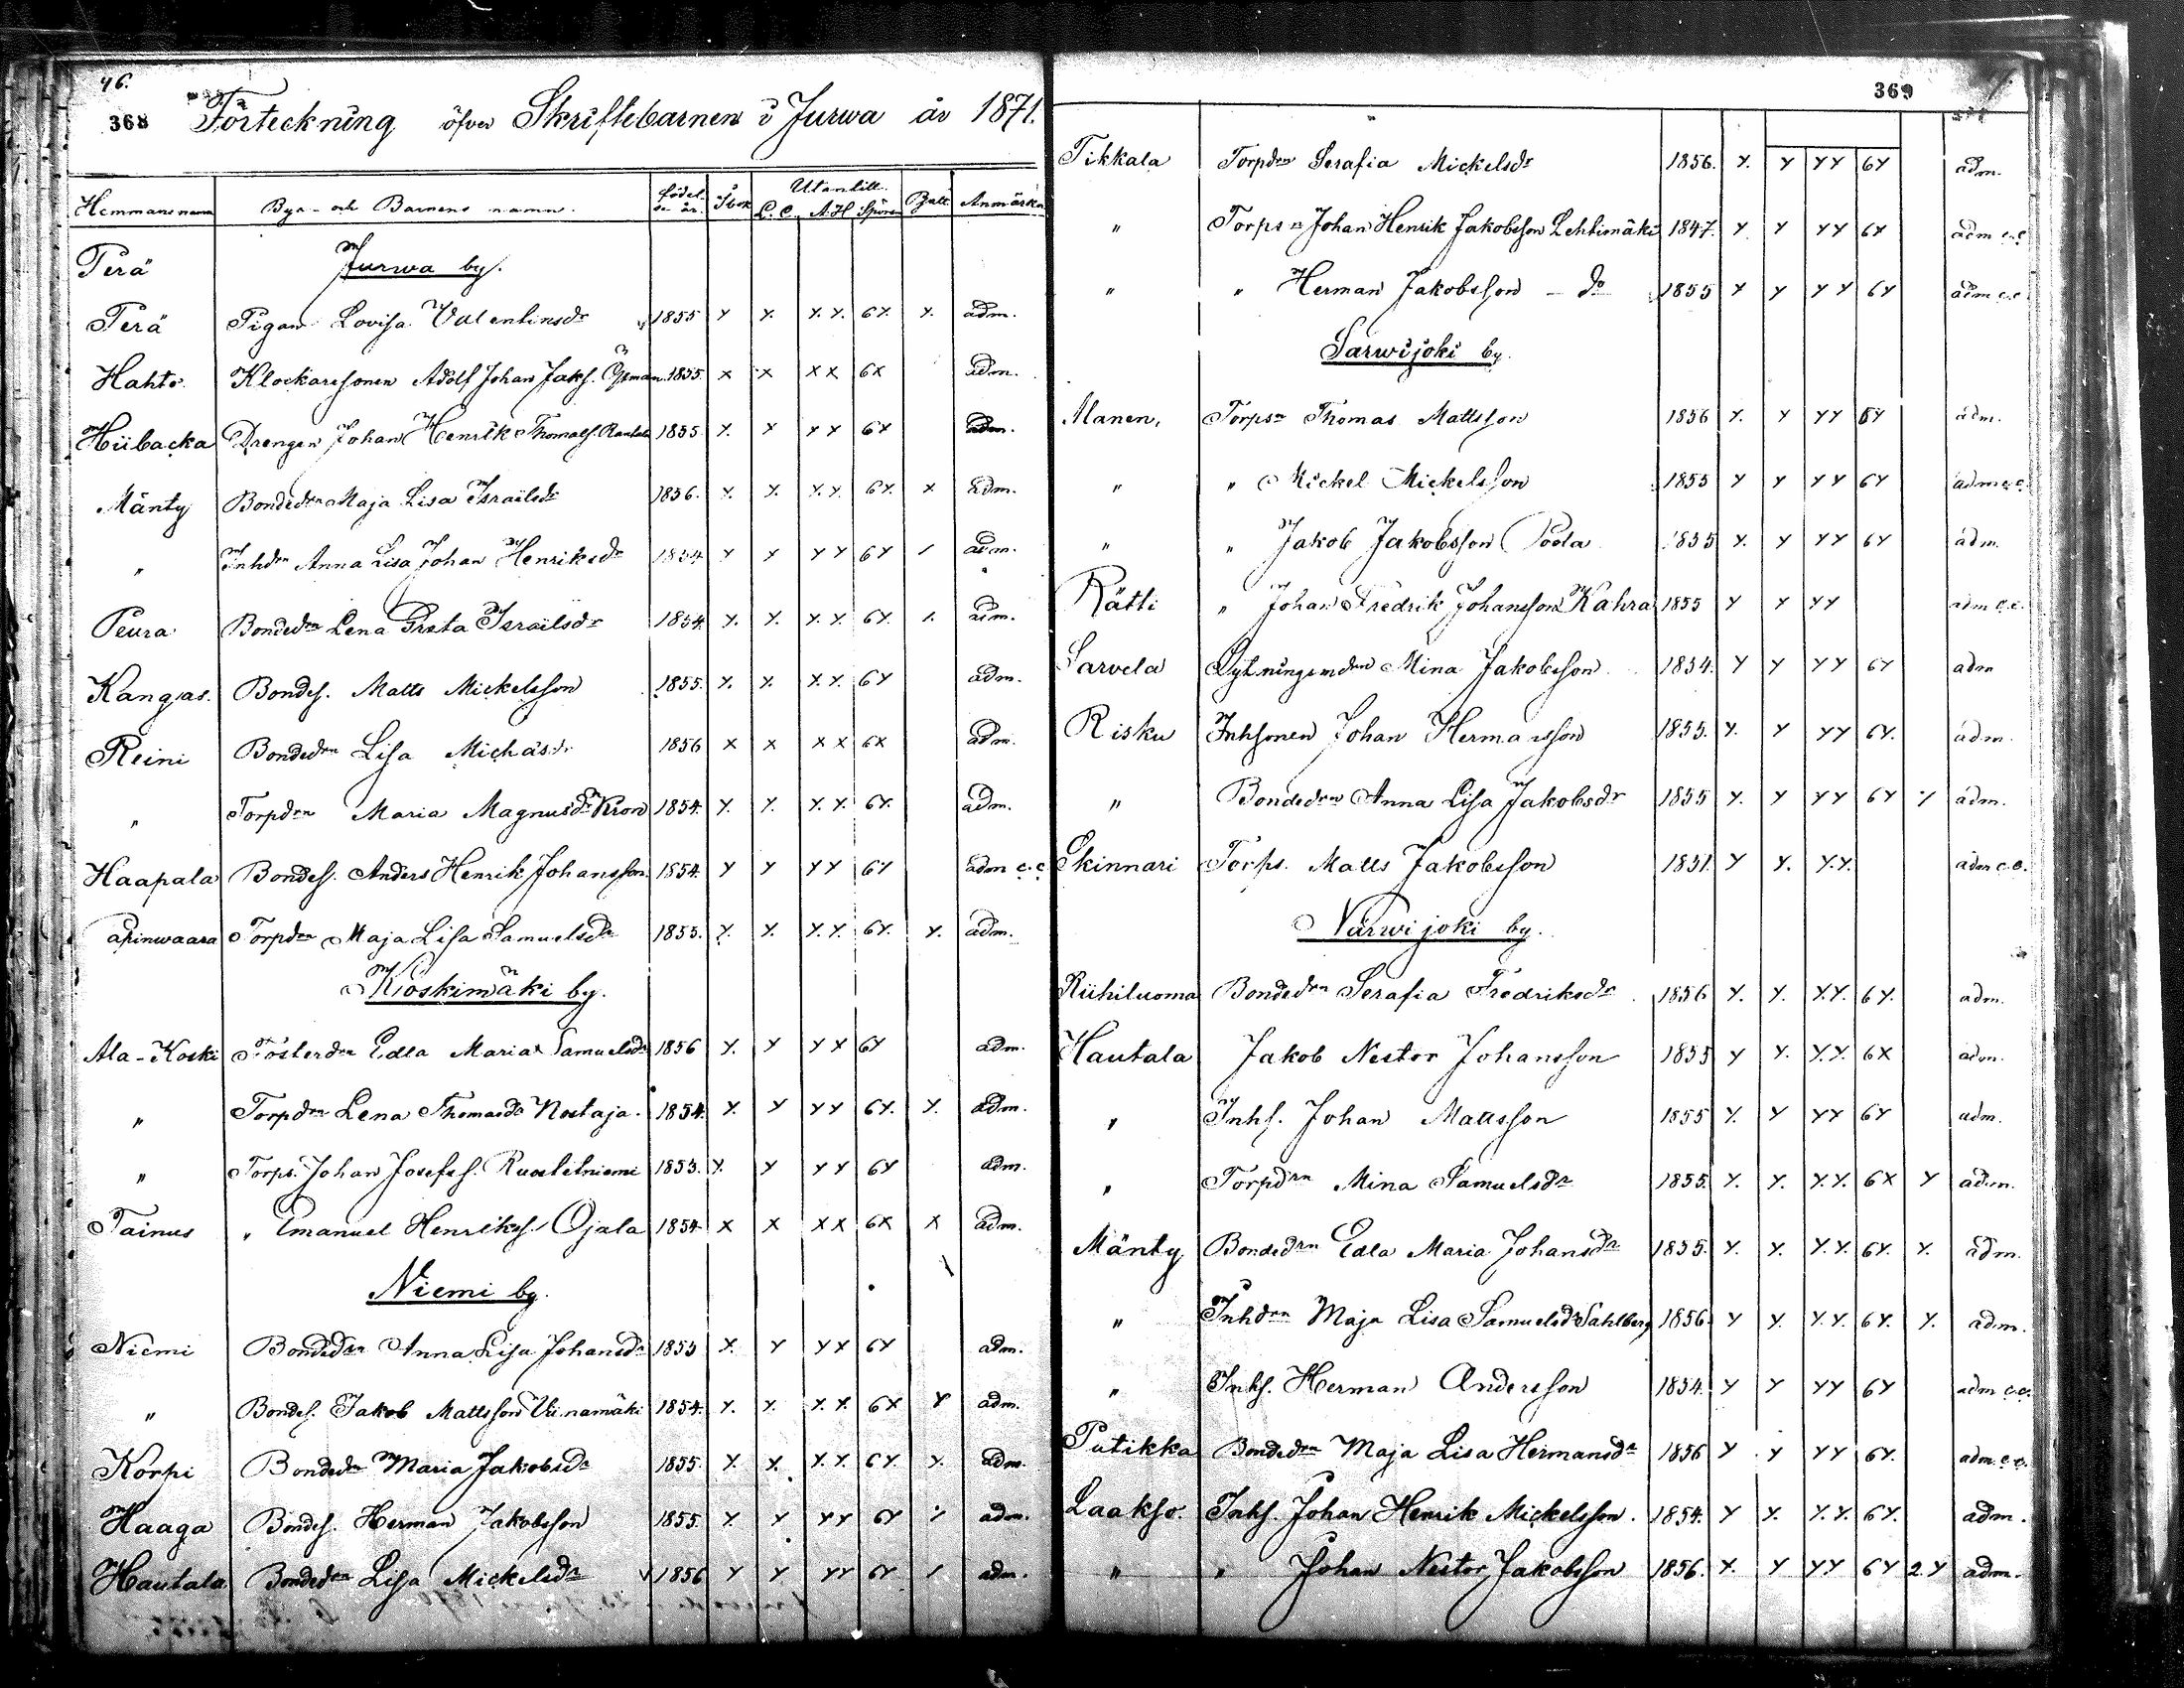 46.
368 Förteckning öfver Skriftebarnen i Jurwa år 1871.
Hemmans namn Bya- och Barnens namn. födelse år. I bok Utantill. L. C. A. H Spörsm Anmärkn
Perä Jurwa by.
Perä Pigan Lovisa Valentinsdr 1855 x x. x. x. 6x. x. adm.
Hahto. Klockaresonen Adolf Johan Jaks. Öhman. 1855. x x x x 6x adm.
Hiibacka Drengen Johan Henrik Thomass. Rantala 1855. x. x x x 6x adm.
Mänty Bondedrn Maja Lisa Israilsdr 1856. x. x. x. x. 6x. x adm.
" Inhdrn Anna Lisa Johan Henriksdr 1854 x x x x 6x / adm.
Peura Bondedrn Lena Greta Israilsdr 1854. x. x. x. x. 6x. /. adm.
Kangas. Bondes. Matts Mickelsson 1855. x. x. x. x. 6x adm.
Reini Bondedrn Lisa Michäsdr 1856 x x x x 6x adm.
" Torpdrn Maria Magnusdr Kron 1854. x. x. x. x. 6x. adm.
Haapala Bondes. Anders Henrik Johansson. 1854. x x x x 6x adm c.c
apinwaara Torpdrn Maja Lisa Samuelsdr 1855. x. x. x. x. 6x. x. adm.
Koskimäki by.
Ala-Koski Fosterdrn Edla Maria Samuelsdr 1856 x. x x x 6x adm.
" Torpdrn Lena Thomasdr Nostaja. 1854. x. x x x 6x. x. adm.
" Torps. Johan Josefss. 1855. x. x x x 6x adm.
Tainus " Emanuel Henrikss. Ojala 1854 x x x x 6x x adm.
Niemi by.
Niemi Bondedrn Anna Lisa Johansdr 1855 x. x x x 6x adm.
" Bondes. Jakob Mattsson Viinamäki 1854. x. x. x. x. 6x x adm.
Korpi Bondedrn Maria Jakobsdr 1855. x. x. x. x. 6x. x. adm.
Haaga Bondes. Herman Jakobsson 1855. x. x x x 6x / adm.
Hautala Bondedrn Lisa Mickelsdr 1856 x x x x 6x / adm.
369
Tikkala Torpdrn Serafia Mickelsdr 1856. x. x x x 6x adm.
" Torpsn Johan Henrik Jakobsson Lehtimäki 1847. x x x x 6x adm c.c
" " Herman Jakobsson – do 1855 x x x x 6x adm c.c
Sarwijoki by.
Manen, Torpsn Thomas Mattsson 1856 x. x x x 6x adm.
" " Mickel Mickelsson 1855 x x x x 6x adm c.c.
" " Jakob Jakobsson Poola 1855 x. x x x 6x adm.
Rätti " Johan Fredrik Johansson Kahra 1855 x x x x adm c.c.
Sarvela Mina Jakobsson 1854. x x x x 6x adm
Risku Inhsonen Johan Hermansson 1855. x. x x x 6x. adm.
" Bondedrn Anna Lisa Jakobsdr 1855 x. x x x 6x / adm.
Skinnari Torps. Matts Jakobsson 1851. x x. x. x. adm c.c.
Närwijoki by.
Riihiluoma Bondedrn Serafia Fredriksdr 1856 x. x. x. x. 6x. adm.
Hautala Jakob Nestor Johansson 1855 x x. x. x. 6x adm.
" Inhs. Johan Mattsson 1855 x. x x x 6x adm.
" Torpdrn Mina Samuelsdr 1855. x. x. x. x. 6x x adm.
Mänty Bondedrn Edla Maria Johansdr 1855. x. x. x. x. 6x. x. adm.
" Inhdrn Maja Lisa Samuelsdr Sahlberg 1856. x x. x. x. 6x. x. adm.
" Inhs. Herman Andersson 1854. x x x x 6x adm c.c.
Putikka Bondedrn Maja Lisa Hermansdr 1856 x x x x 6x. adm. c.c.
Laakso. Inhs. Johan Henrik Mickelsson. 1854. x x. x. x. 6x. adm.
" " Johan Nestor Jakobsson 1856. x. x x x 6x 2.x adm.